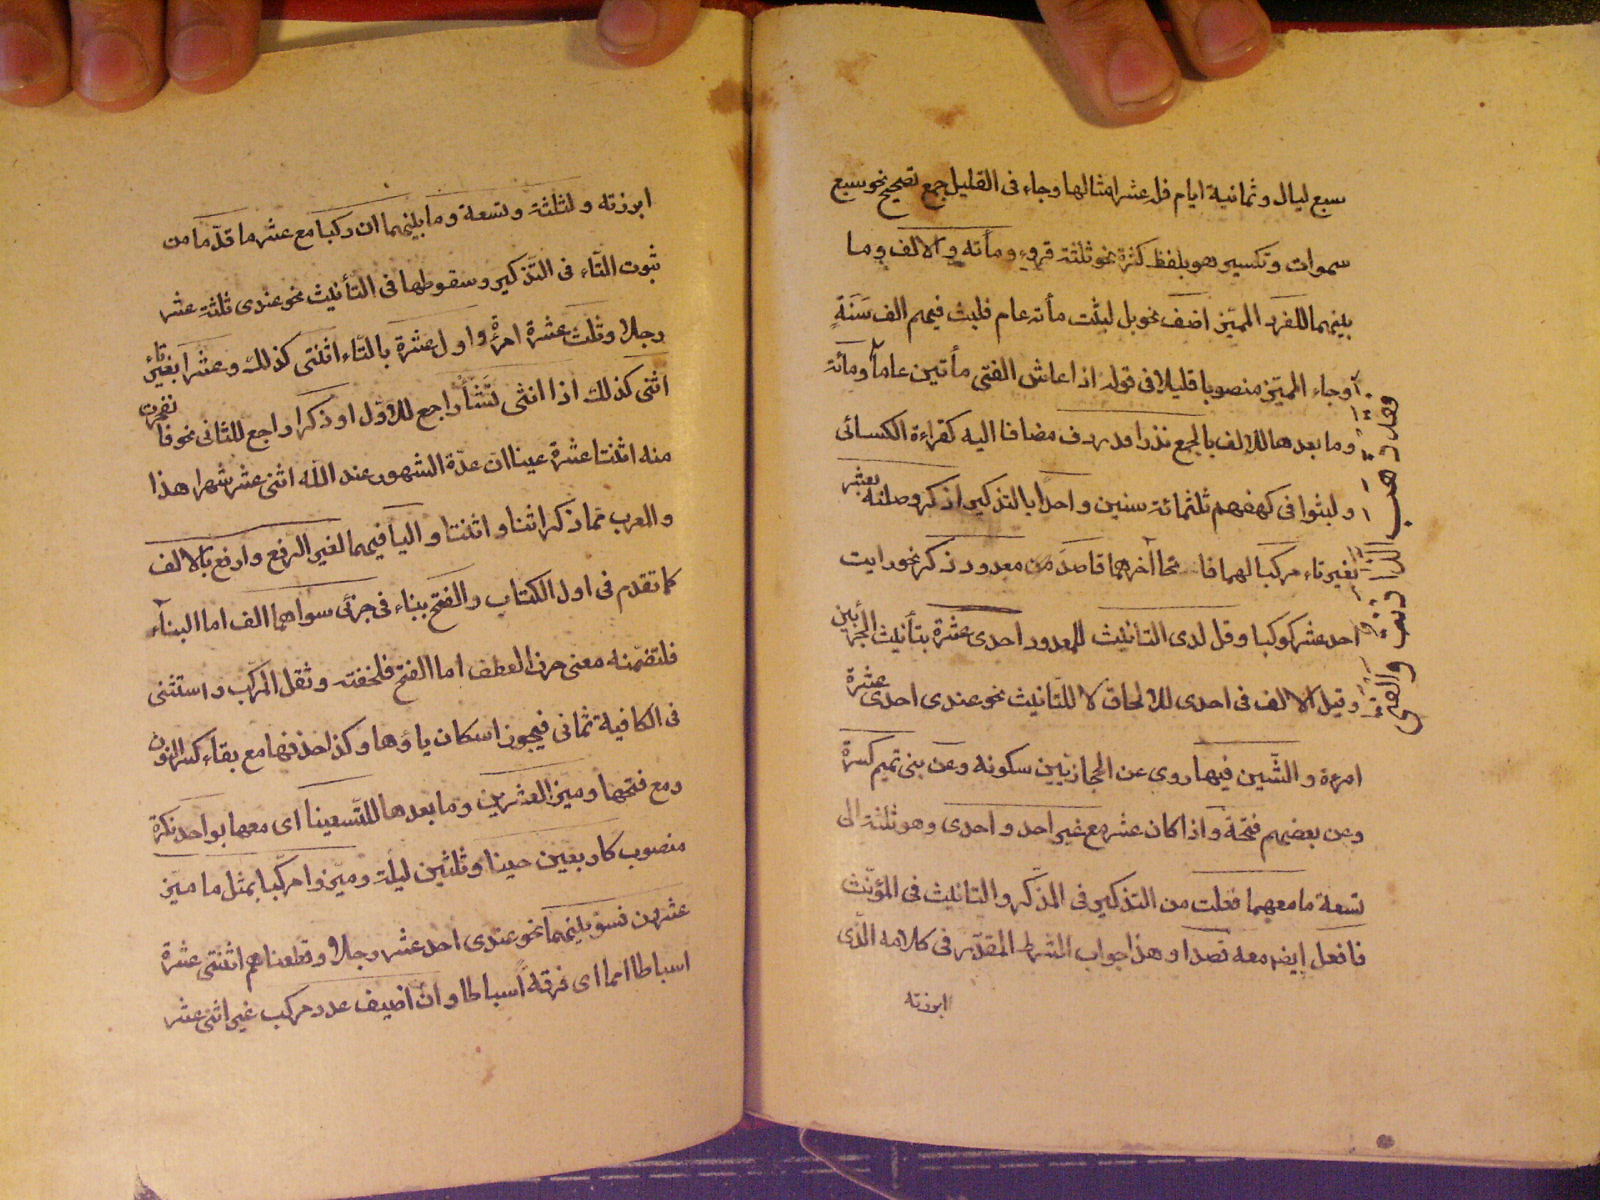 سبع ليال وثمانية ايام فله عشر امثالها وجاء فى القليل جمع تصحيح نحو سبع
سموات وتكسير هو بلفظ كثرة نحو ثلثة قروء ومأته والالف وما
بينهما للفرد المميز اضف نحو بل لبثت مأته عام فلبث فيهم الف سَنَةٍ
وجاء المميز منصوبا قليلا فى قوله اذا عاش الفتى مأتين عاماً ومأته
وما بعدها للالف بالجمع نذرا قد ردف مضافا اليه كقراءة الكسائى
ولبثوا فى كهفهم ثلثمائة سنين واحد بالتذكير اذكر وصلنه بعشر
بغير تاء مركبا لهما فا آخرهما قاصدَ من معدود ذكر نحو رايت
احد عشر كوكبا وقل لدى التانيث للمعدود احدى عشرة بتأنيث الجزئين
وقيل الالف فى احدى للالحاق لا للتانيث نحو عندى احدى عشرة
امرءة والشّين فيها روى عن الحجازيين سكونه وعن بنى تميم كسرة
وعن بعضهم فتحة واذا كان عشر مع غير احد واحدى وهو ثلثة الى
تسعة ما معهما فعلت من التذكير فى المذكر والتانيث فى المؤنّث
فافعل ايضا معه قصدا وهذا جواب الشرط المقدّر فى كلامه الّذى
ابرزته
وقد ذهب اللذاذة والفتى
ابرزته ولثلثة وتسعة وما بينهما ان ركبا مع عشر ما قدّما من
ثبوت التّاء فى التّذكير وسقوطها فى التأنيث نحو عندى ثلثة عشر
رجلا وثلث عشرة امرءة واول عشرة بالتّاء اثنتى كذلك وعشرا بغير تاء
اثنى كذلك اذا انثى تَشَأ راجع للاوّل او ذكرا راجع للثانى نحو فانفجرت
منه اثنتا عشرة عينا ان عدّة الشهور عند الله اثنى عشر شهرا هذا
والمعرب ممّا ذكر اثنا واثنتا واليا فيهما لغير الرفع وارفع بالالف
كما تقدم فى اول الكتاب والفتح بناء فى جزئى سواهما الف اما البناء
فلتضمّنه معنى حرف العطف اما الفتح فلخفته وثقل المركب واستثنى
فى الكافية ثمانى فيجوز اسكان ياؤها وكذا حذفها مع بقاء كسر النون
ومع فتحها وميز العشرين وما بعدها للتّسعينا اى معها بواحد نكرة
منصوب كاربعين حينا وثلثين ليلة وميّزوا مركبا بمثل ما ميز
عشرون فسوّ بينهما نحو عندى احد عشر رجلا وقطعناهم اثنتى عشرة
اسباطا امما اى فرقة اسباطا وان اضيف عدد مركب غير اثنى عشر